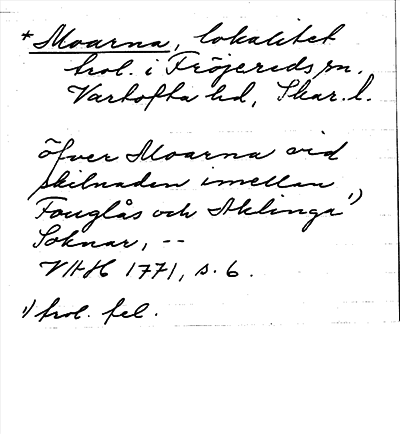 *Moarna, lokalitet
trol. i Fröjereds sn.
Vartofta hd, Skar. l.
öfver Moarna vid
skilnaden imellan
Fouglås och Aklinga 1)
Soknar, --
VAH 1771, s. 6.
1) trol. fel.